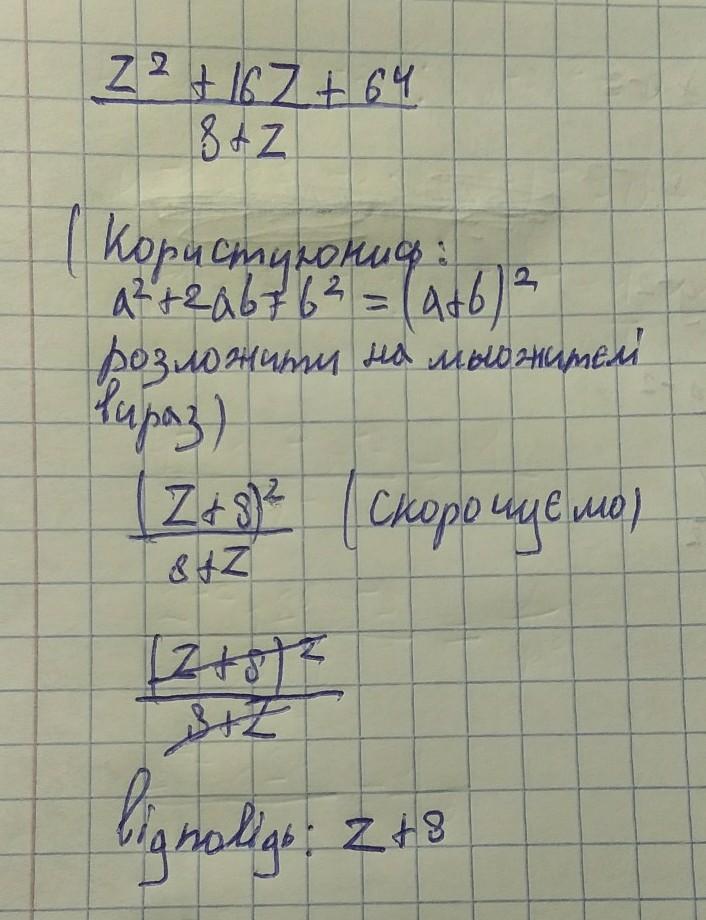 z² + 16z + 64
8 + z
(Користуючись:
a² + 2ab + b² = (a+b)²
розложити на множителі
вираз)
(z + 8)² (скорочуємо)
8 + z
(z + 8)²
8 + z
Відповідь: z + 8